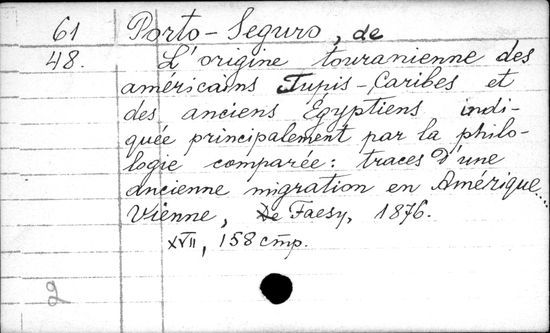 61 Porto-Seguro, de
48. L'origine touranienne des
américains Tupis-Caribes et
des anciens Egyptiens indi-
quée principalement par la philo-
logie comparée: traces d'une
ancienne migration en Amérique....
Vienne, De Faesy, 1876.
XVII, 158 cmp.